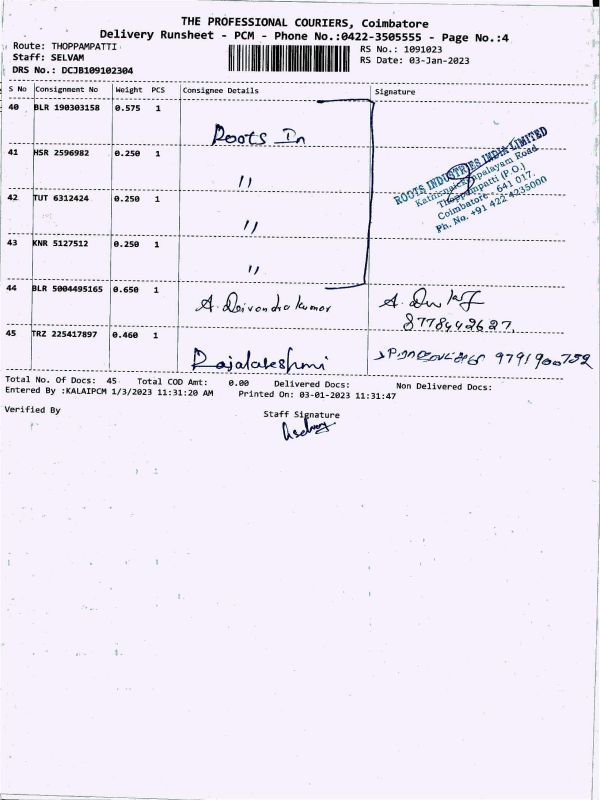 THE PROFESSIONAL COURIERS, Coimbatore
Delivery Runsheet - PCM - Phone No.:0422-3505555 - Page No.:4
Route: THOPPAMPATTI
Staff: SELVAM
DRS No.: DCJB109102304
RS No.: 1091023
RS Date: 03-Jan-2023
S No Consignment No Weight PCS Consignee Details Signature
40 BLR 190303158 0.575 1
Roots In
41 HSR 2596982 0.250 1
"
42 TUT 6312424 0.250 1
"
43 KNR 5127512 0.250 1
"
ROOTS INDUSTRIES INDIA LIMITED
Thoppampatti (P.O.)
Coimbatore - 641 017.
Ph. No. +91 422 4235000
44 BLR 5004495165 0.650 1
A. Deivendrakumar A.
8778442627.
45 TRZ 225417897 0.460 1
Rajalakshmi 9791900752
Total No. Of Docs: 45 Total COD Amt: 0.00 Delivered Docs: Non Delivered Docs:
Entered By :KALAIPCM 1/3/2023 11:31:20 AM Printed On: 03-01-2023 11:31:47
Verified By Staff Signature